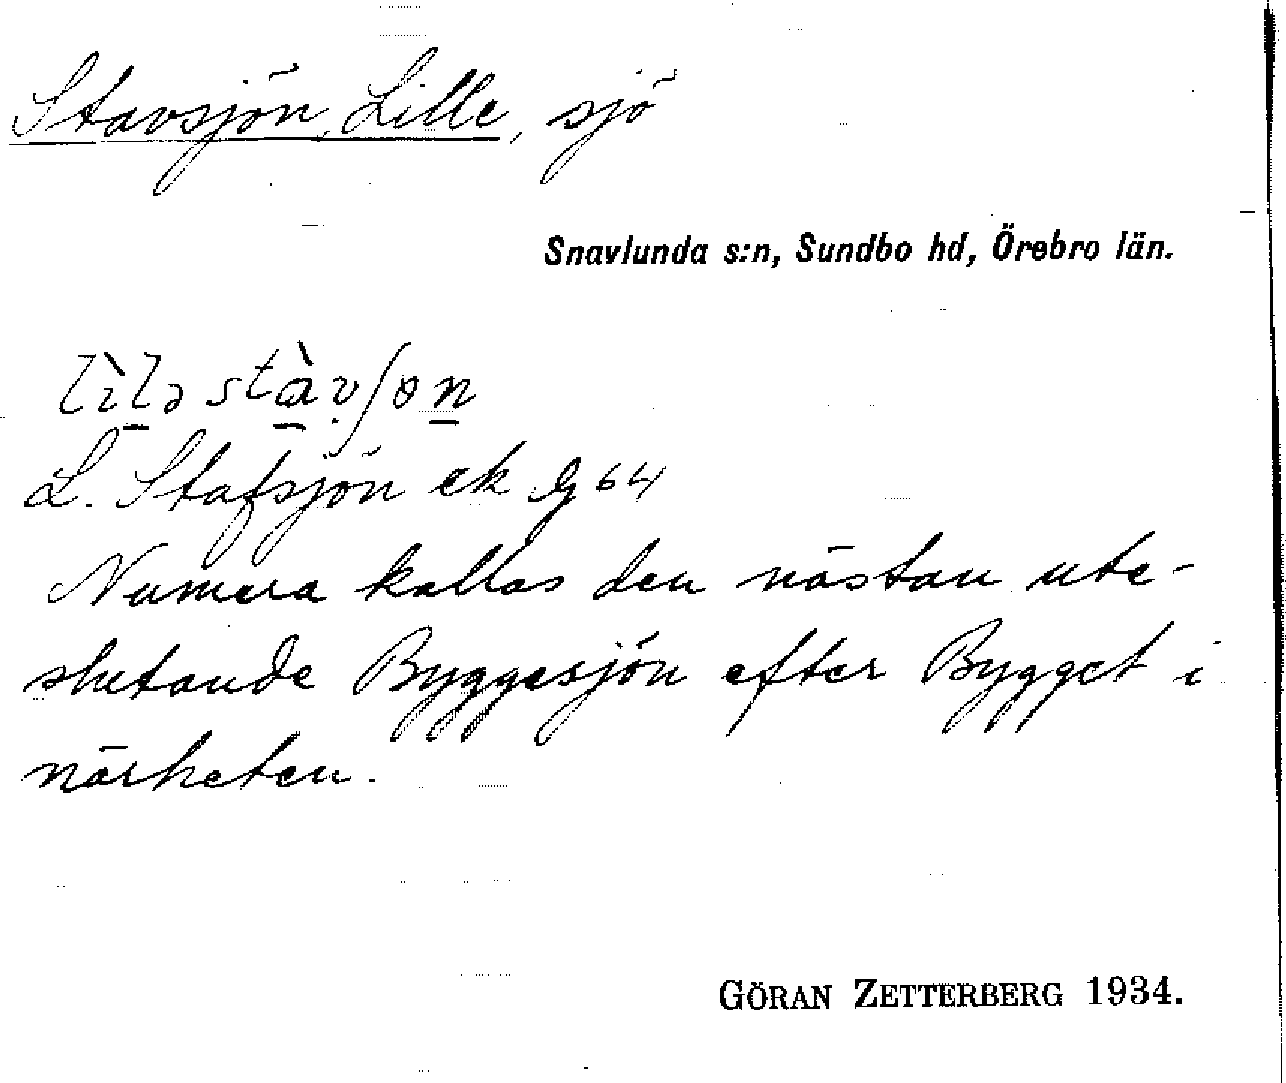 Stavsjön, Lille, sjö
Snavlunda s:n, Sundbo hd, Örebro län.
lìlə stàvʃɵn
L. Stafsjön ek lg 64
Numera kallas den nästan ute-
slutande Byggesjön efter Bygget i
närheten.
GÖRAN ZETTERBERG 1934.